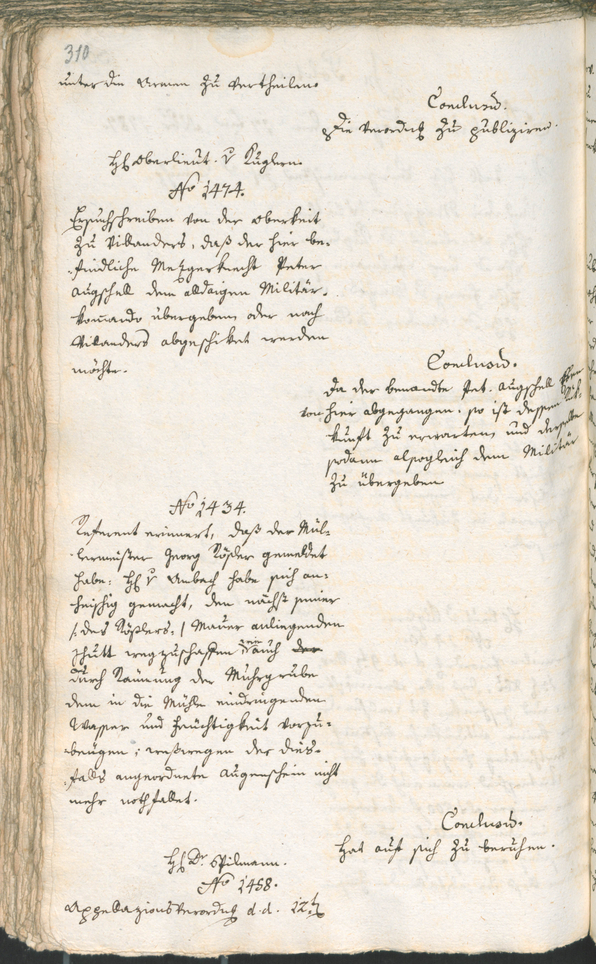 310
unter die Armen zu vertheilen.
Conclusū.
Die Verordng zu publiziren.
H. Oberlieut. v Kuglern.
No 1474.
Ersuchschreiben von der Oberkeit
zu Villanders, daß der hier be-
findliche Metzgerknecht Peter
Augschell dem alldaigen Militär-
komando übergeben, oder nach
Villanders abgeschiket werden
möchte.
Conclusū.
Da der benannte Pet. Augschell
von hier abgegangen, so ist dessen
kunft zu erwarten, und derselbe
sodann alsogleich dem Militär
zu übergeben
No 1434.
Referent erinnert, daß der Mül-
lermeister Georg Rößler gemeldet
habe: H. v Ambach habe sich an-
heischig gemacht, den nächst seiner
/: des Rößlers :/ Mauer anliegenden
Schutt wegzuschaffen auch
durch Räumung der Muhrgrube
dem in die Mühle eindringenden
Wasser und Feuchtigkeit vorzu-
beugen; weßwegen der dies-
falls angeordnete Augenschein nicht
mehr nothfallet.
Conclusū.
Hat auf sich zu beruhen.
H. Dr. Spilmann.
No 1458.
Appellazionsverordng d. d. 12t